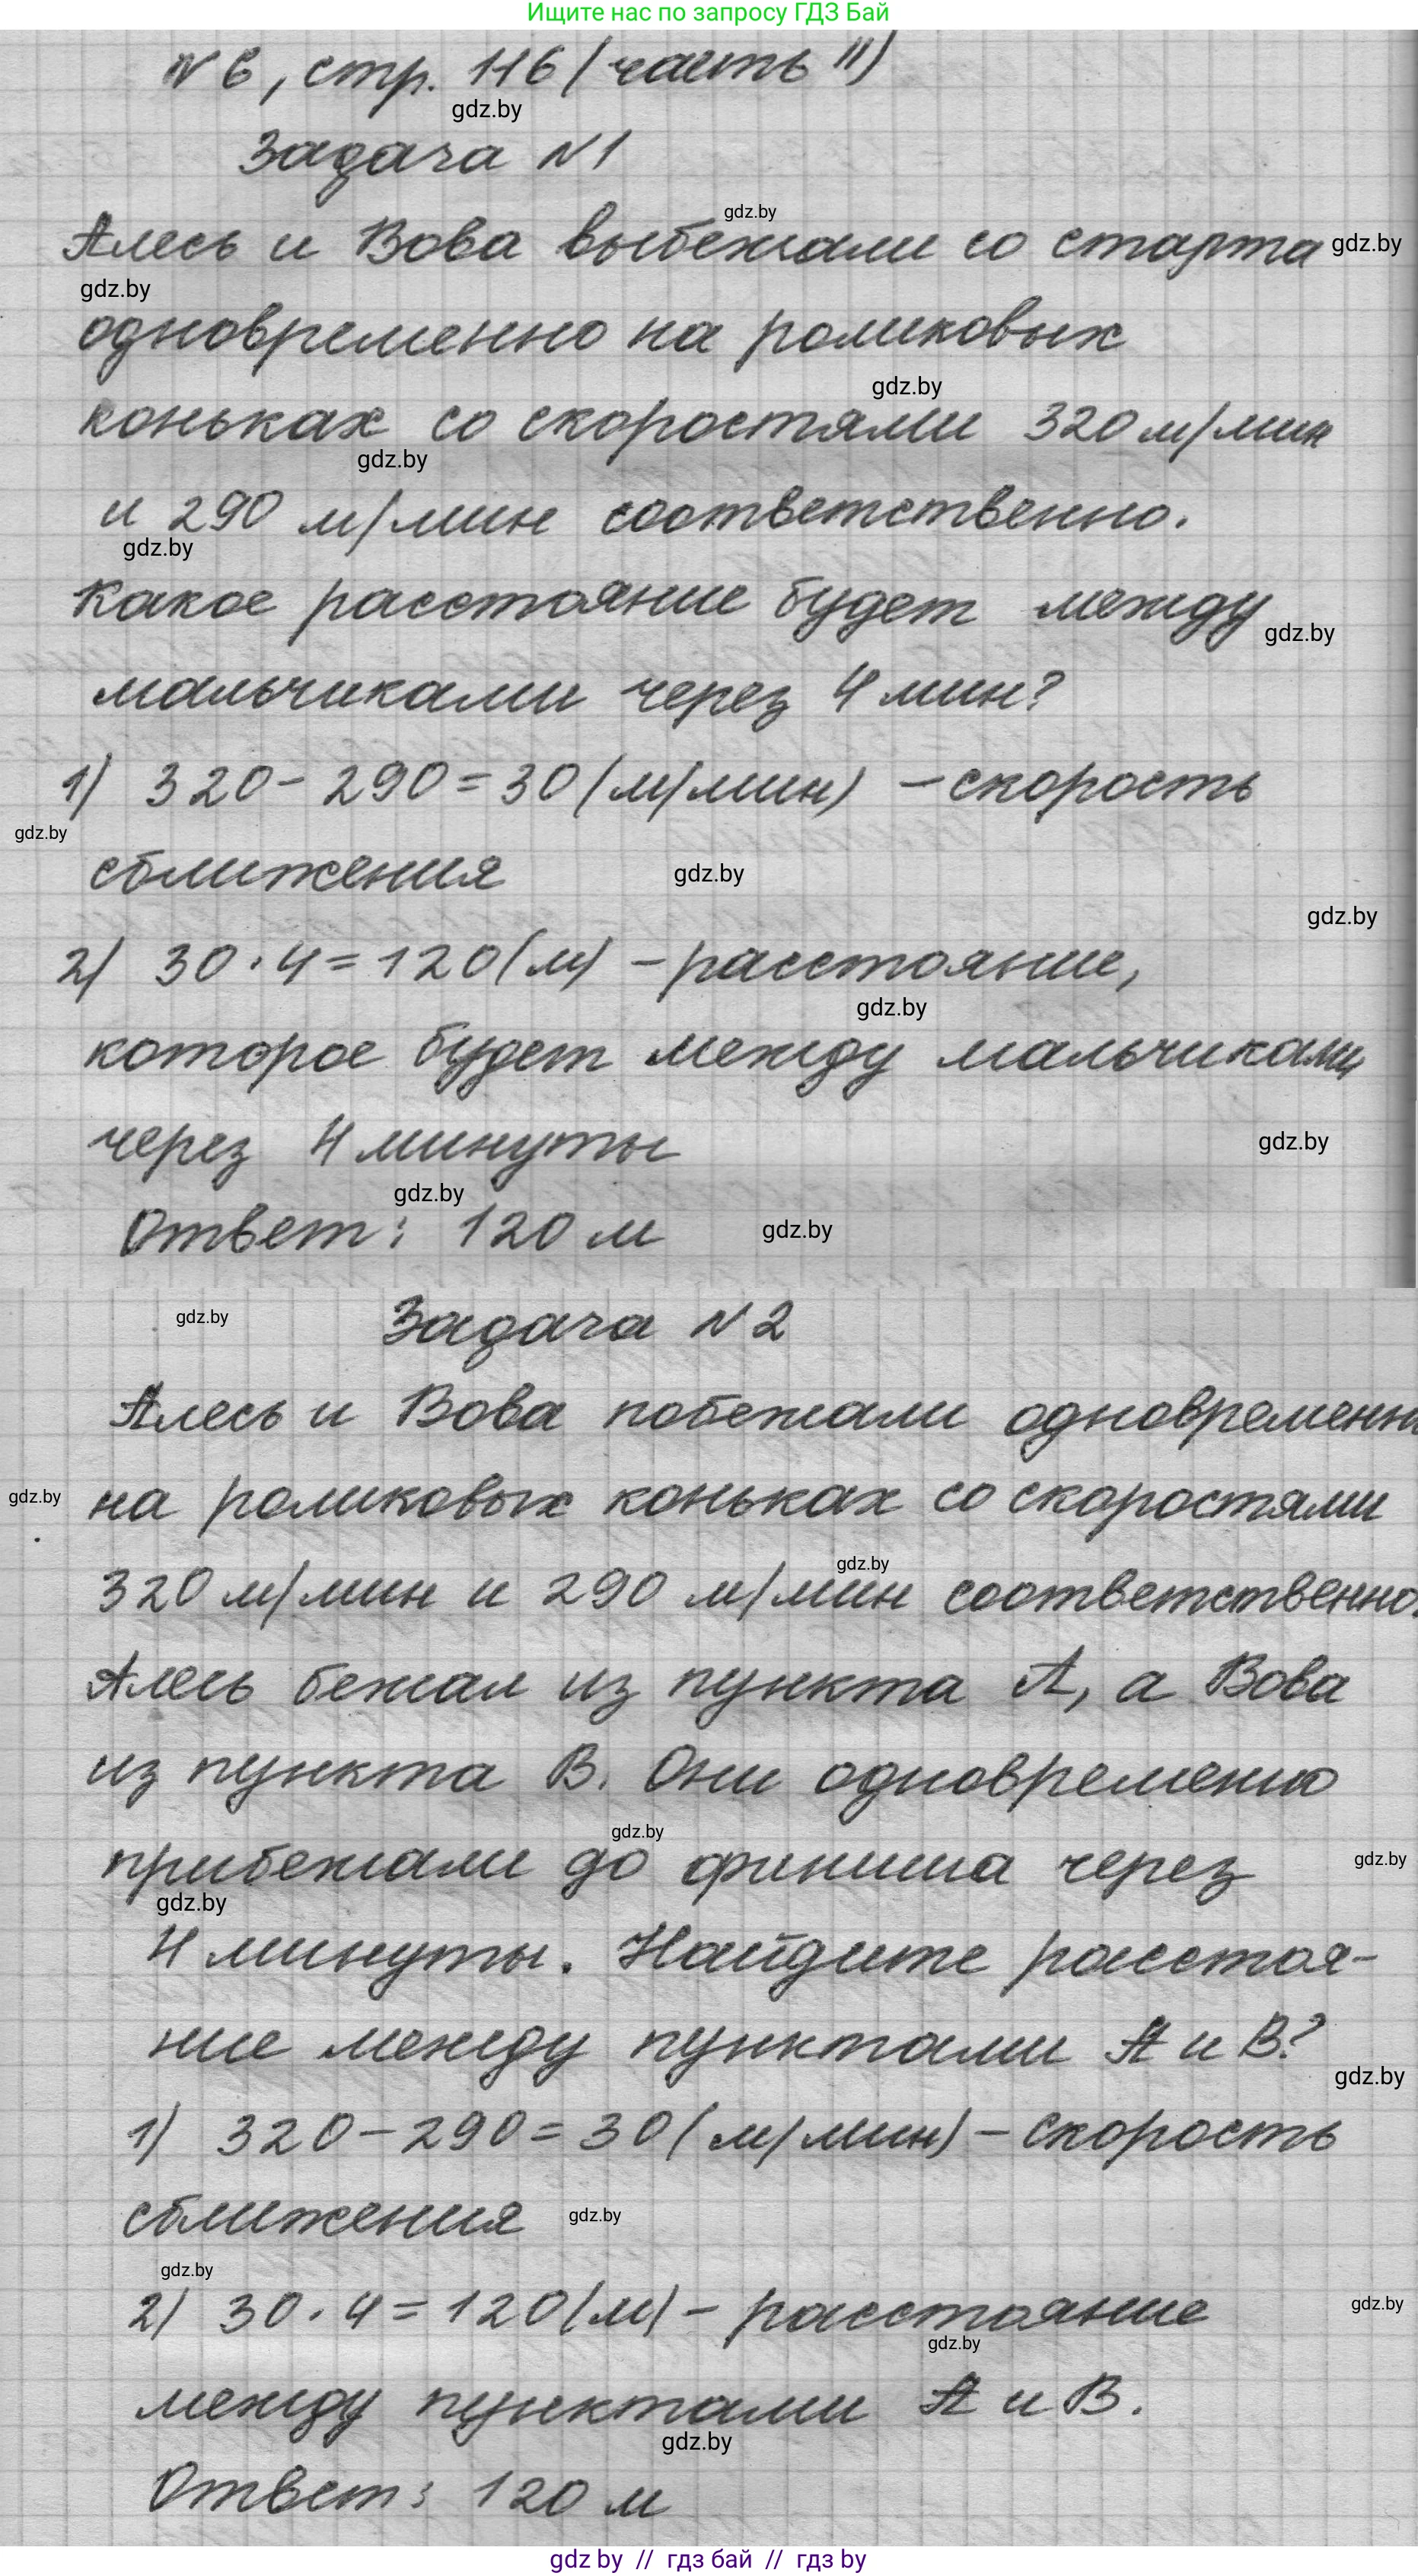 Ищите нас по запросу ГДЗ Бай
N 6, стр. 116 (часть II)
gdz.by
Задача N 1
gdz.by
Алесь и Вова выбежали со старта gdz.by
gdz.by
одновременно на роликовых
gdz.by
коньках со скоростями 320 м/мин
gdz.by
и 290 м/мин соответственно.
gdz.by
Какое расстояние будет между
gdz.by
мальчиками через 4 мин?
1) 320 - 290 = 30 (м/мин) - скорость
gdz.by
сближения gdz.by
gdz.by
2) 30 · 4 = 120 (м) - расстояние,
gdz.by
которое будет между мальчиками
через 4 минуты gdz.by
gdz.by
Ответ: 120 м gdz.by
gdz.by Задача N 2
Алесь и Вова побежали одновременн
gdz.by на роликовых коньках со скоростями
gdz.by
320 м/мин и 290 м/мин соответственно.
Алесь бежал из пункта А, а Вова
из пункта В. Они одновременно
gdz.by
прибежали до финиша через gdz.by
gdz.by
4 минуты. Найдите расстоя-
ние между пунктами А и В?
gdz.by
1) 320 - 290 = 30 (м/мин) - скорость
сближения gdz.by
gdz.by
2) 30 · 4 = 120 (м) - расстояние gdz.by
gdz.by
между пунктами А и В.
gdz.by
Ответ: 120 м
gdz by // гдз бай // гдз by